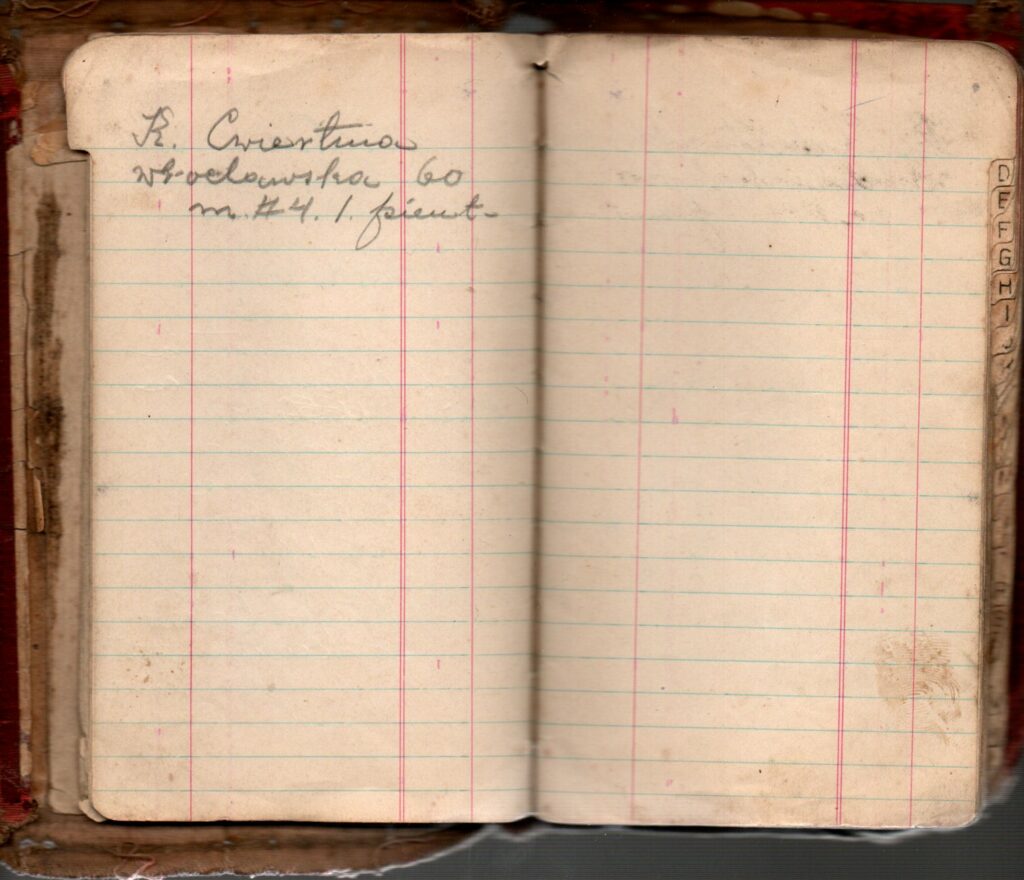 K. Cwiertnia
Wrocławska 60
m. #4. 1. pient-
D
E
F
G
H
I
J